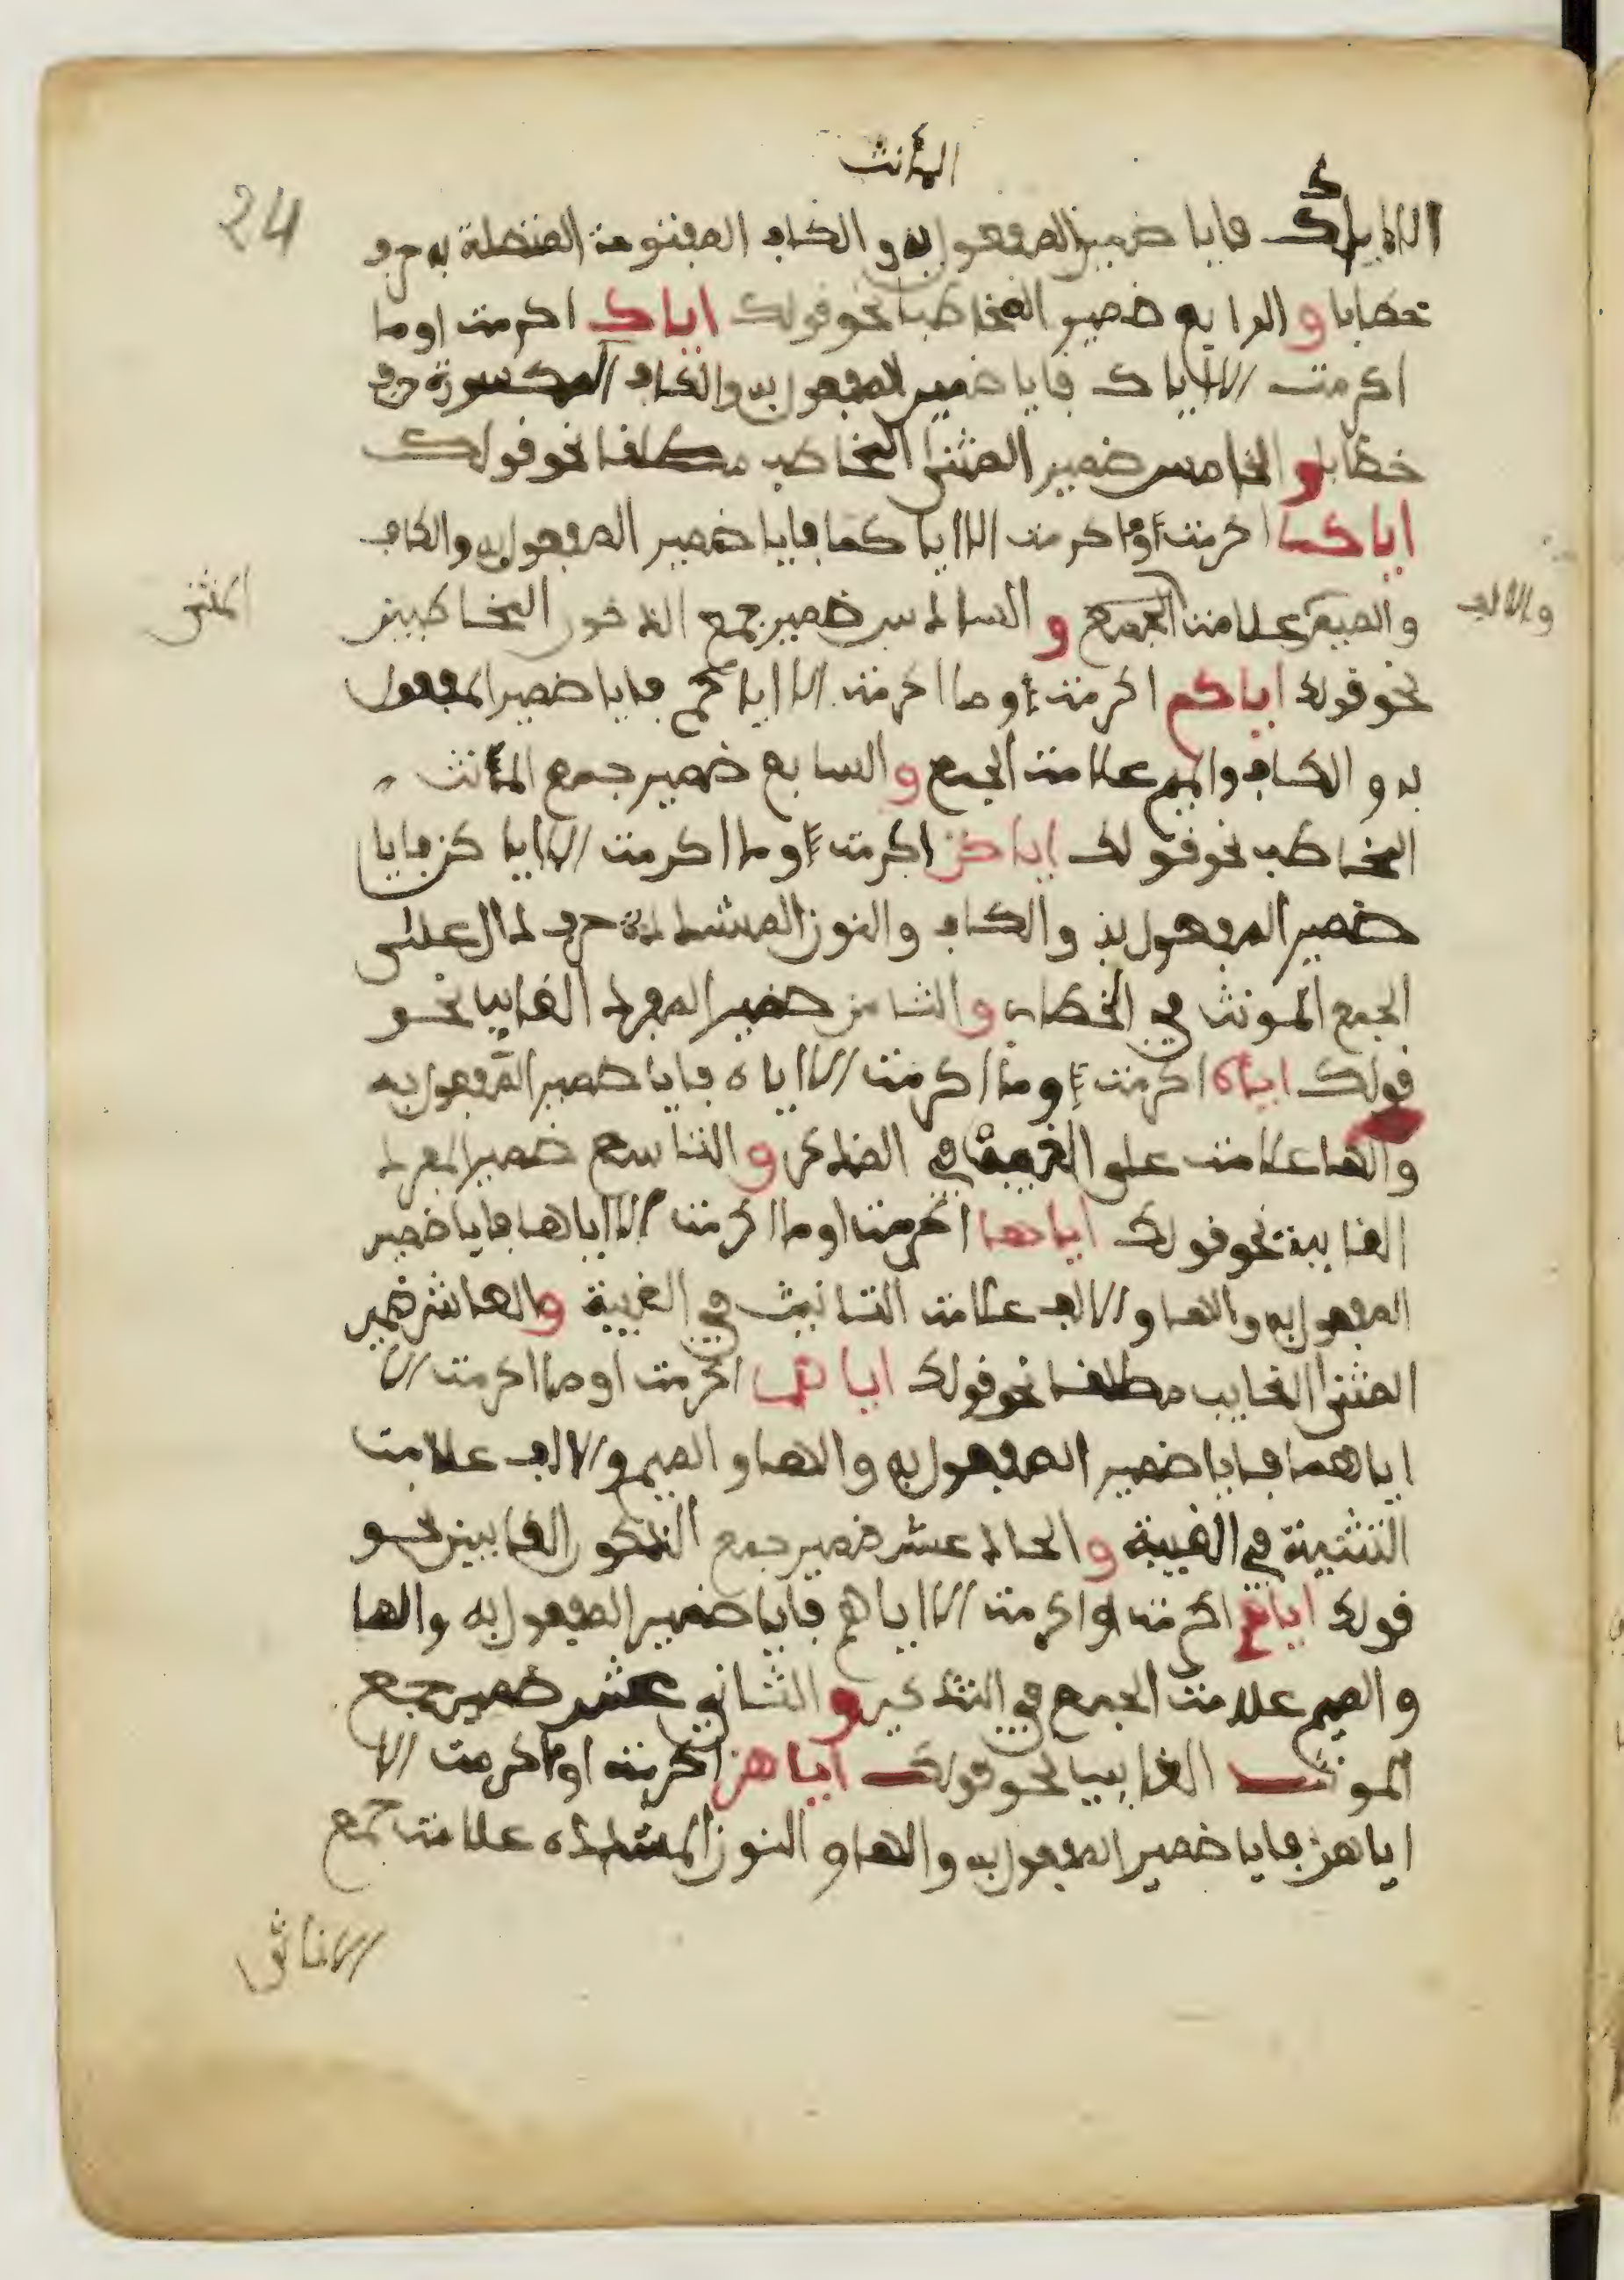 المؤنث
24
الا اياك فايا ضمير المفعول به والكاف المفتوحة المتصلة به حرف
خطابا والرابع ضمير المخاطبا نحو قولك اياك اكرمت او ما
اكرمت الا اياك فايا ضمير المفعول به والكاف المكسورة حرف
خطاب والخامس ضمير المثنى المخاطب مطلقا نحو قولك
اياكما اكرمت او ما اكرمت الا اياكما فايا ضمير المفعول به والكاف
والالف
والميم علامت الجمع والسادس ضمير جمع الذكور المخاطبين
المثنى
نحو قولك اياكم اكرمت او ما اكرمت الا اياكم فايا ضمير المفعول
به والكاف والميم علامت الجمع والسابع ضمير جمع المؤنث
المخاطب نحو قولك اياكن اكرمت او ما اكرمت الا اياكن فايا
ضمير المفعول به والكاف والنون المشددة حرف دال على
الجمع المونث في الخطاب والثامن ضمير المفرد الغايبا نحو
قولك اياه اكرمت او ما اكرمت الا اياه فايا ضمير المفعول به
والها علامت على الغيبة في المذكر والتاسع ضمير المفرد
الغايبة نحو قولك اياها اكرمت او ما اكرمت الا اياها فايا ضمير
المفعول به والها والالف علامت التانيث في الغيبة والعاشر ضمير
المثنى الغايب مطلقا نحو قولك اياهما اكرمت او ما اكرمت الا
اياهما فايا ضمير المفعول به والها والميم والالف علامت
التثنية في الغيبة والحاد عشر ضمير جمع الذكور الغايبين نحو
قولك اياهم اكرمت او اكرمت الا اياهم فايا ضمير المفعول به والها
والميم علامت الجمع في التذكير والثاني عشر ضمير جمع
المونث الغايبا نحو قولك اياهن اكرمت او ما اكرمت الا
اياهن فايا ضمير المفعول به والها والنون المشدده علامت جمع
الاناث